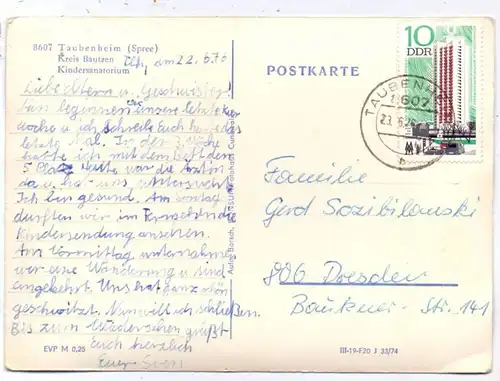 8607 Taubenheim (Spree)
Kreis Bautzen
Kindersanatorium
am 22.6.76
Liebe Eltern u. Geschwister!
Nun beginnen unsere letzte
woche u. ich schreibe Euch das
letzte Mal. In der 3. Woche
hatte ich mit dem Bett den
5. Platz. Heute war die Ärztin
da u. hat uns untersucht.
Ich bin gesund. Am Sonntag
durften wir im Fernsehen die
Kindersendung ansehen.
Am Vormittag unternahmen
wir eine Wanderung u. sind
eingekehrt. Uns hat ganz schön
geschwitzt. Nun will ich schließen.
Bis zum Wiedersehen grüßt
Euch herzlich
Euer
EVP M 0,25
POSTKARTE
10
DDR
TAUBENHEIM
8607
b
Familie
Gerd Sozibilanski
806 Dresden
Bautzner-Str. 141
III-19-F20 J 33/74